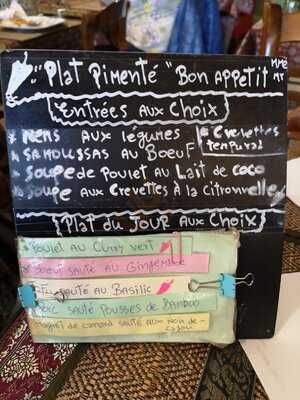 "Plat Pimenté" Bon appetit Mme Mr
Entrées aux Choix
Nems aux légumes
Crevettes tempura
Samoussas au Boeuf
Soupe de Poulet au Lait de coco
Soupe aux Crevettes à la citronnelle
Plat du Jour aux Choix
Poulet au Curry vert
Boeuf sauté au Gingembre
sauté au Basilic
Porc sauté Pousses de Bambou
Magret de canard sauté aux Noix de Cajou